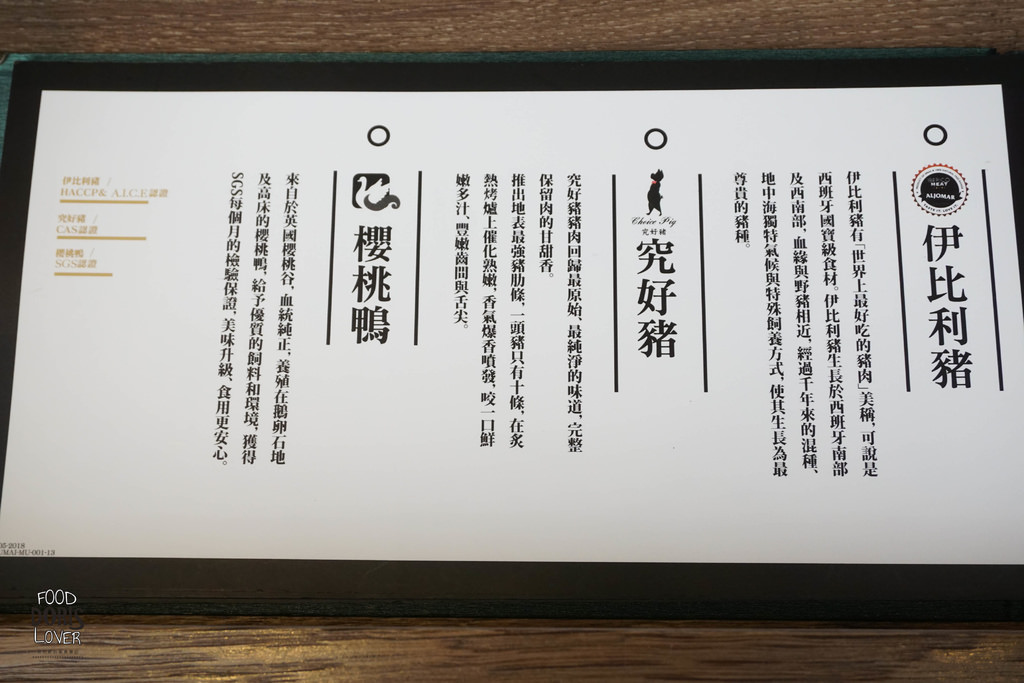 ALJOMAR
伊比利豬
伊比利豬有「世界上最好吃的豬肉」美稱，可說是
西班牙國寶級食材。伊比利豬生長於西班牙南部
及西南部，血緣與野豬相近，經過千年來的混種、
地中海獨特氣候與特殊飼養方式，使其生長為最
尊貴的豬種。
Choice Pig
究好豬
究好豬
究好豬豬肉回歸最原始、最純淨的味道，完整
保留肉的甘甜香。
推出地表最強豬肋條，一頭豬只有十條，在炙
熱烤爐上催化熟嫩，香氣爆香噴發，咬一口鮮
嫩多汁、豐嫩齒間與舌尖。
櫻桃鴨
來自於英國櫻桃谷，血統純正，養殖在鵝卵石地
及高床的櫻桃鴨，給予優質的飼料和環境，獲得
SGS每個月的檢驗保證，美味升級、食用更安心。
伊比利豬 /
HACCP& A.I.C.E認證
究好豬 /
CAS認證
櫻桃鴨 /
SGS認證
05-2018
UMAI-MU-001-13
FOOD
LOVER